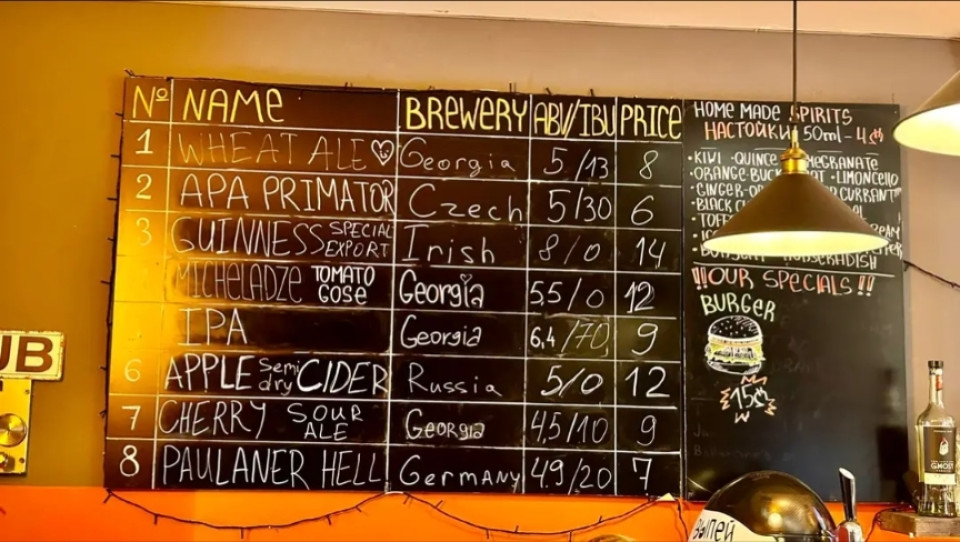 Nº NAME BREWERY ABV/IBU PRICE
1 WHEAT ALE Georgia 5/13 8
2 APA PRIMATOR Czech 5/30 6
3 GUINNESS SPECIAL EXPORT Irish 8/0 14
MICHELADZE TOMATO GOSE Georgia 5.5/0 12
IPA Georgia 6,4/70 9
6 APPLE Semi dry CIDER Russia 5/0 12
7 CHERRY SOUR ALE Georgia 4,5/10 9
8 PAULANER HELL GERMANY 4.9/20 7
HOME MADE SPIRITS
НАСТОЙКИ 50ml - 4₾
• KIWI • QUINCE
• ORANGE • LIMONCELLO
• GINGER
HORSERADISH
!!OUR SPECIALS!!
BURGER
15₾
UB
GHOST